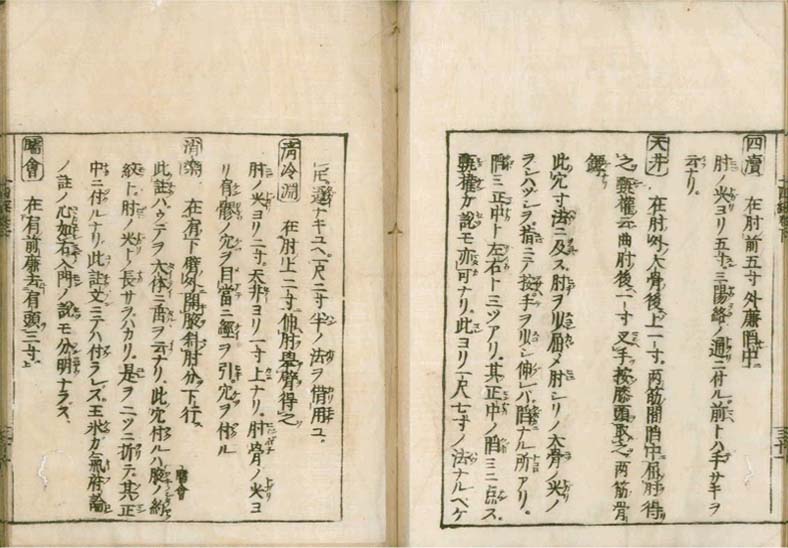 四瀆 在肘前五寸外廉陷中
肘ノ尖ヨリ五寸三陽絡ノ通ニ付ル前トハ手サキヲ
云ナリ
天井 在肘外大骨後上一寸两筋間陷中屈肘得
之甄權云曲肘後一寸叉手按膝頭取之两筋骨
鏬
此穴寸法ニ及ス肘ヲ少屈メ肘シリノ大骨ノ尖ノ
ヲシハツシヲ指ニテ按手ヲ少シ伸レハ陷ナル所アリ
陷三正中ト左右ト三ツアリ其正中ノ陷ミニ点ス
甄權カ說モ亦可ナリ此ヨリ一尺七寸ノ法ナルベケ
違ナキユヘ一尺二寸半ノ法ヲ借用ユ
清冷淵 在肘上二寸伸肘擧臂得之
肘ノ尖ヨリ二寸天井ヨリ一寸上ナリ肘ノ尖ヨ
リ有髎ノ穴ヲ目當ニ經ヲ引穴ヲ付ル
消濼 在肩下臂外開腋斜肘分下行
此註ハウテヲ大体ニ云ナリ此穴付ルハ腋ノ
紋ト肘ノ尖トノ長サヲハカリ是ヲ二ツニ折テ其正
中ニ付ルナリ此註文ミテハ付ラレス王氷カ氣府論
ノ註ノ心如右入門ノ說モ分明ナラス
臑會
臑會 在肩前廉去肩頭三寸